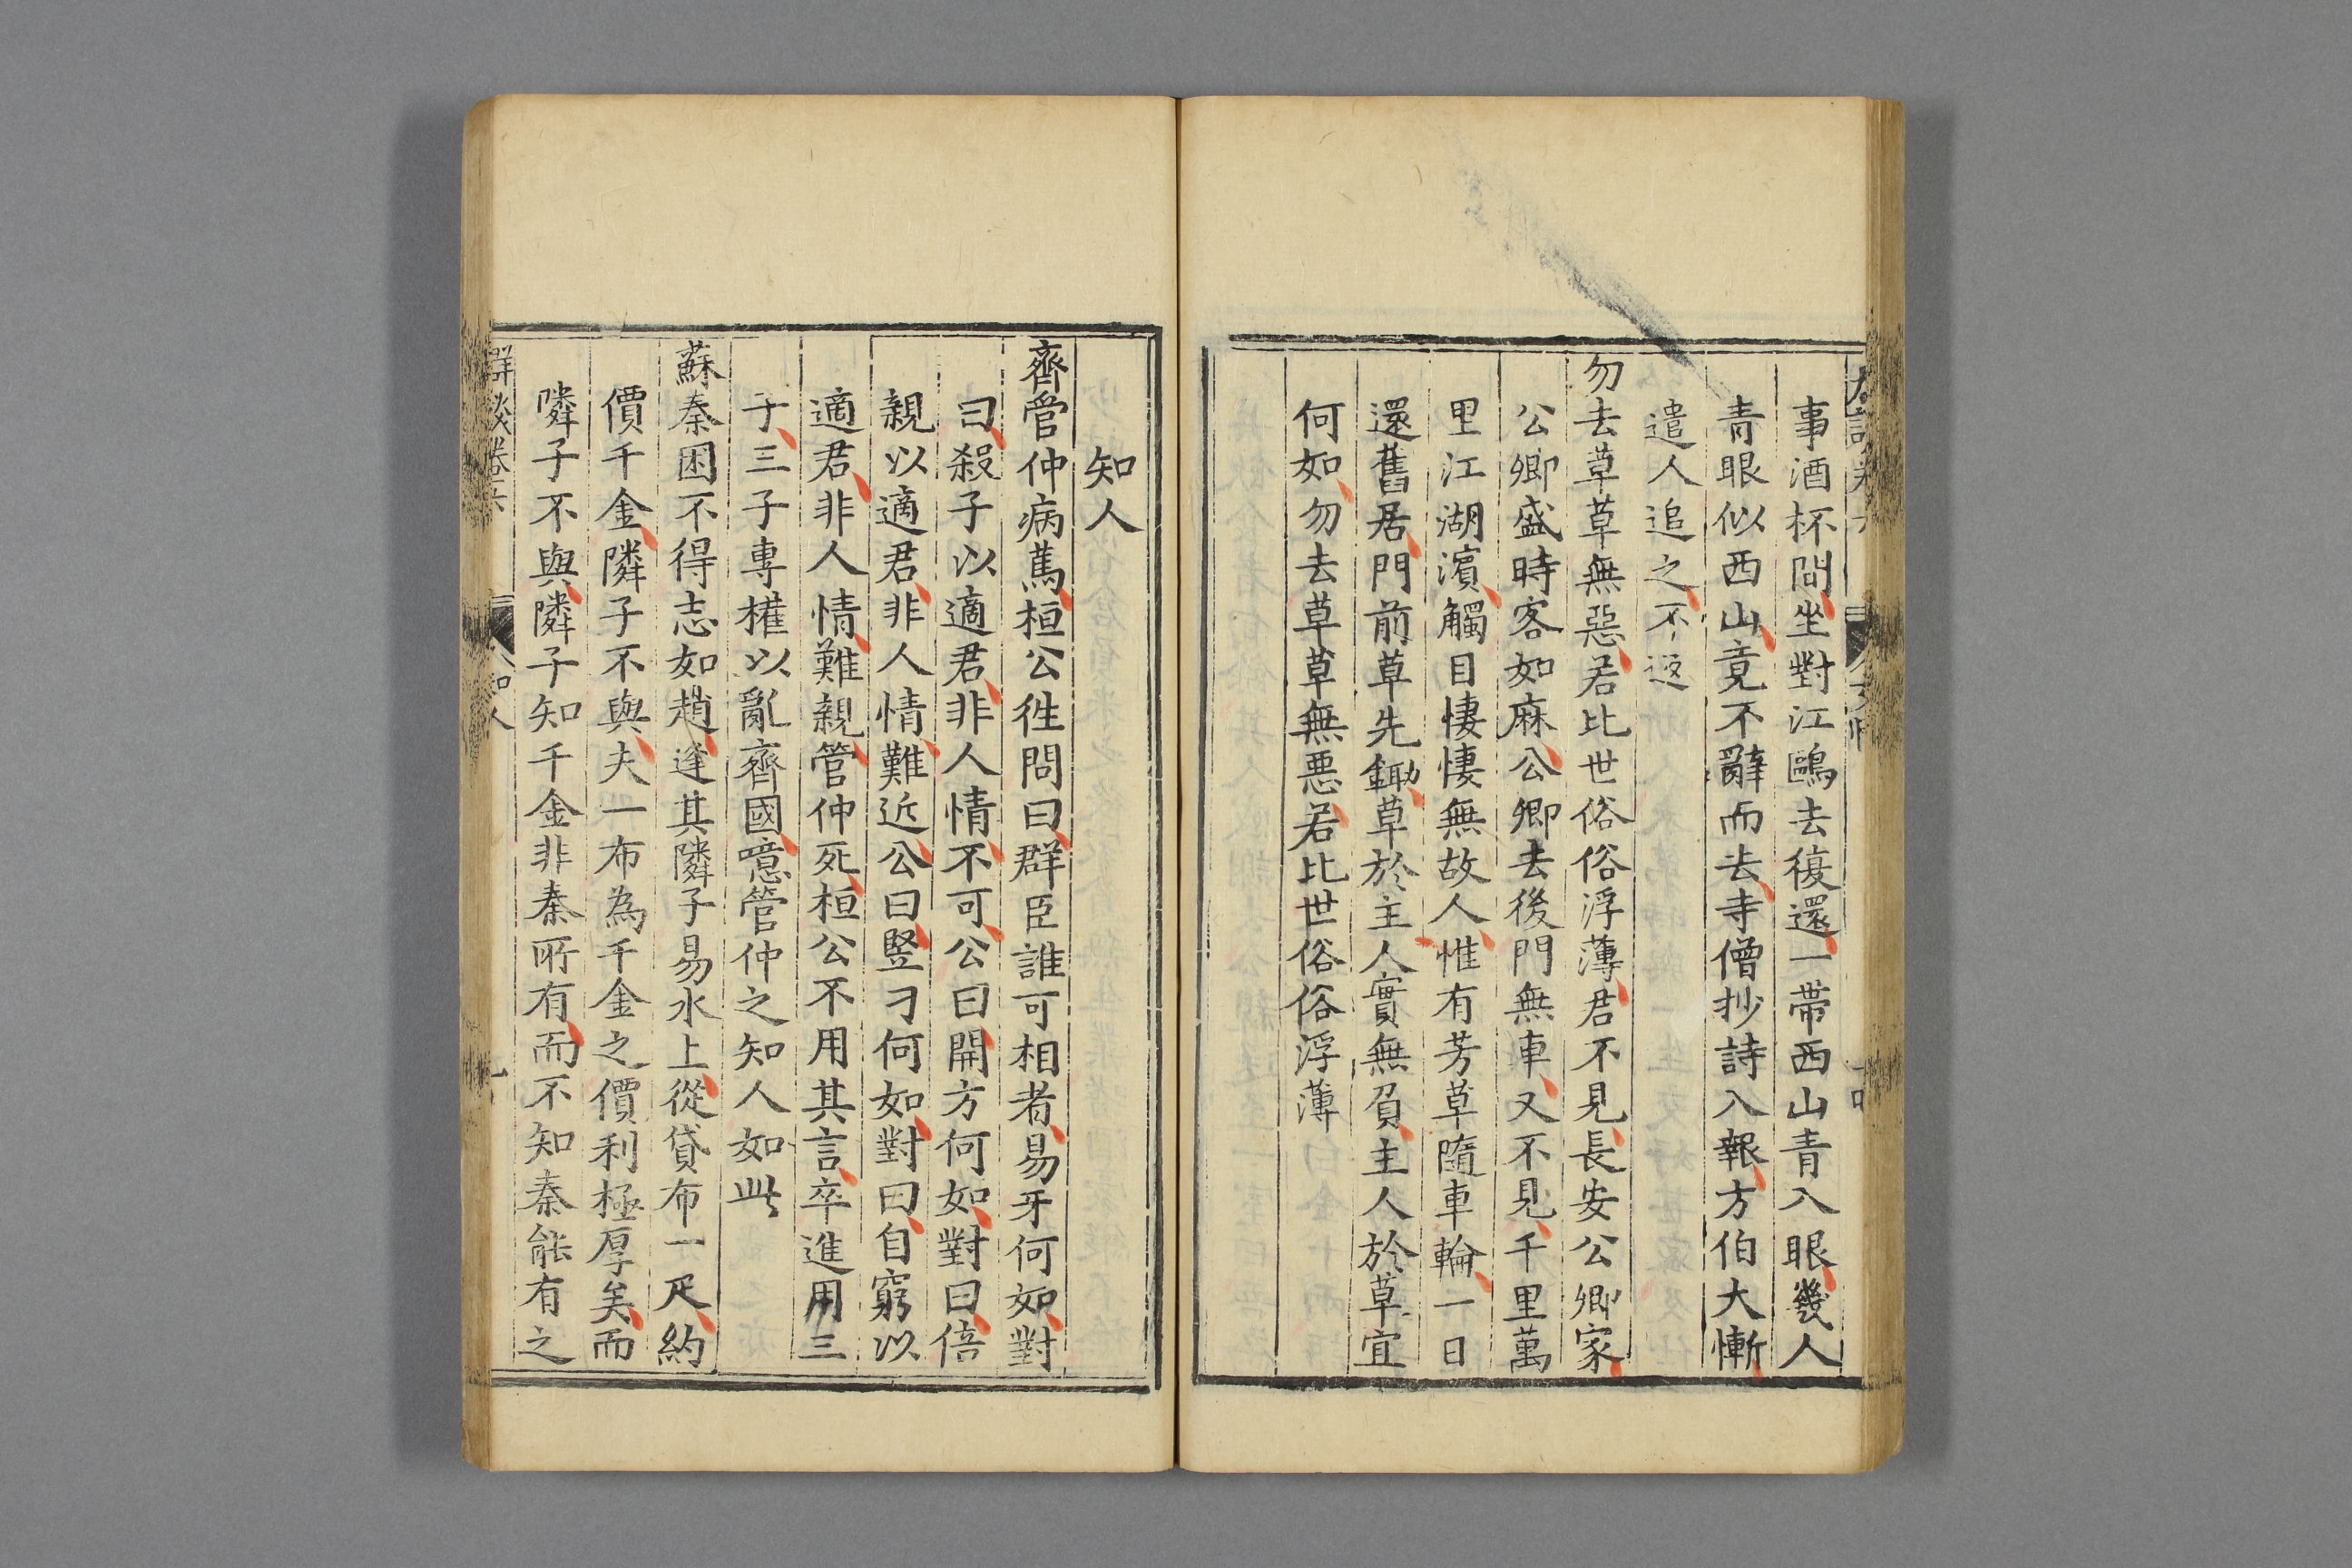 事酒杯間坐對江鷗去復還一帶西山青入眼幾人
青眼似西山竟不辭而去寺僧抄詩入報方伯大慚
遣人追之不返
勿去草草無惡若比世俗俗浮薄君不見長安公卿家
公卿盛時客如麻公卿去後門無車又不見千里萬
里江湖濱觸目悽悽無故人惟有芳草隨車輪一日
還舊居門前草先鋤草於主人實無負主人於草宜
何如勿去草草無悪若比世俗俗浮薄
知人
齊管仲病篤桓公徃問曰群臣誰可相者易牙何如對
曰殺子以適君非人情不可公曰開方何如對曰倍
親以適君非人情難近公曰竪刁何如對曰自窮以
適君非人情難親管仲死桓公不用其言卒進用三
子三子專權以亂齊國噫管仲之知人如此
蘇秦困不得志如趙逢其隣子易水上從貸布一疋約
價千金隣子不與夫一布為千金之價利極厚矣而
隣子不與隣子知千金非秦所有而不知秦能有之
群談卷六 知人